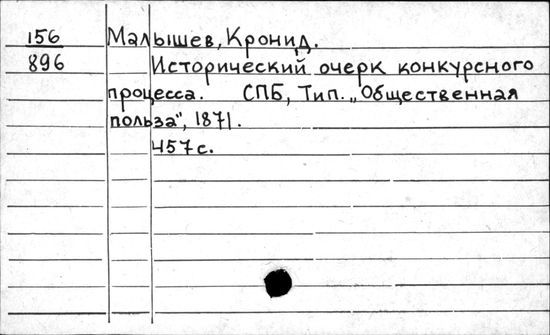 156 Малышев, Кронид.
896 Исторический очерк конкурсного
процесса. СПБ, Тип. „Общественная
польза", 1871.
457 с.